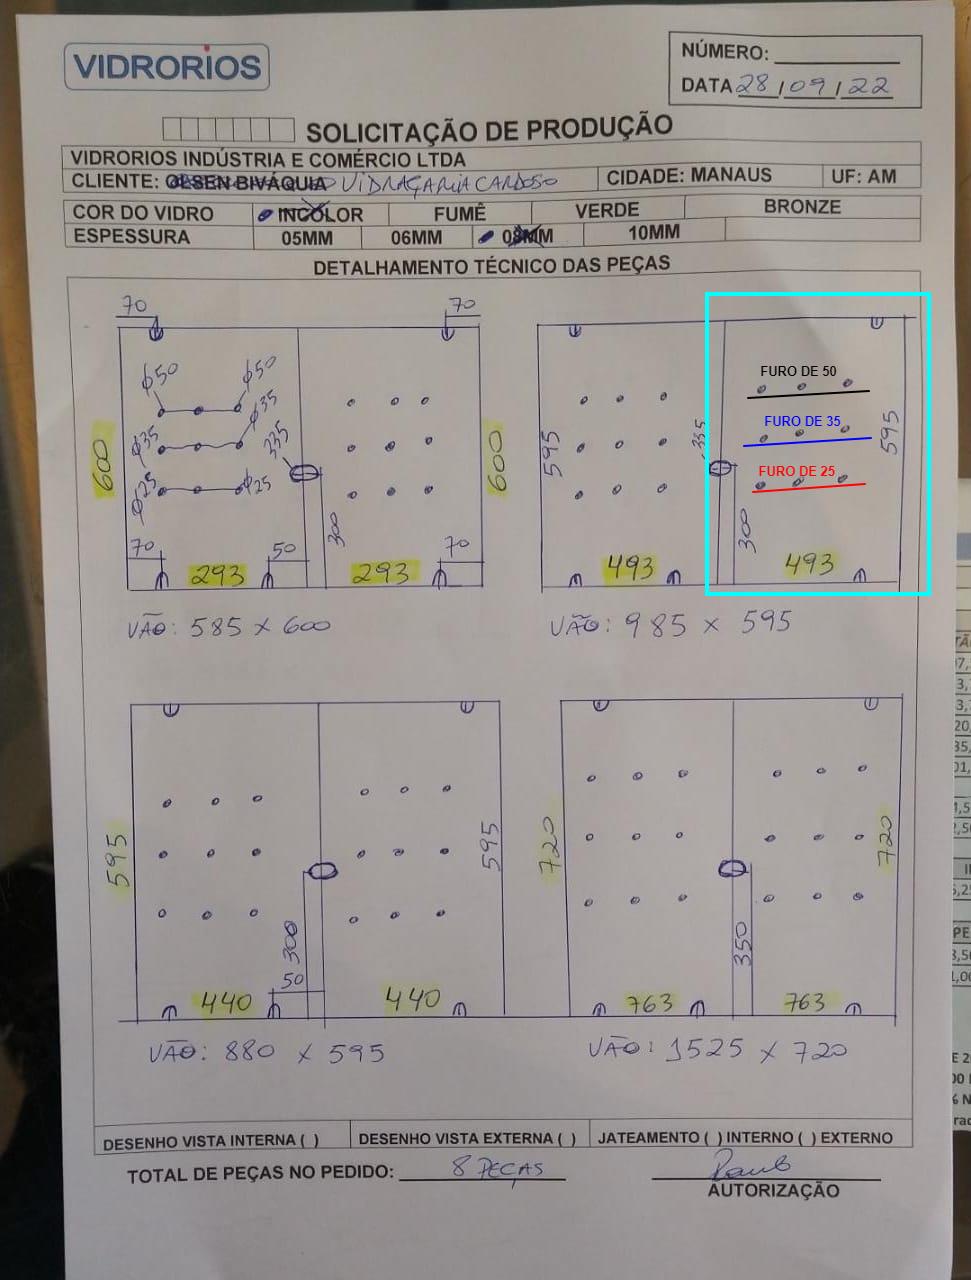 VIDRORIOS
NÚMERO:
DATA 28/09/22
SOLICITAÇÃO DE PRODUÇÃO
VIDRORIOS INDÚSTRIA E COMÉRCIO LTDA
CLIENTE: OLSEN BIVÁQUIA VIDRAÇARIA CARDOSO CIDADE: MANAUS UF: AM
COR DO VIDRO INCOLOR FUMÊ VERDE BRONZE
ESPESSURA 05MM 06MM 08MM 10MM
DETALHAMENTO TÉCNICO DAS PEÇAS
70 70
ϕ50 ϕ50
ϕ35 ϕ35
ϕ25 ϕ25
335
600 600
300
70 50 70
293 293
VÃO: 585 x 600
FURO DE 50
FURO DE 35
FURO DE 25
595 335 595
300
493 493
VÃO: 985 x 595
595 595
300
50
440 440
VÃO: 880 x 595
720 720
350
763 763
VÃO: 1525 x 720
DESENHO VISTA INTERNA ( ) DESENHO VISTA EXTERNA ( ) JATEAMENTO ( ) INTERNO ( ) EXTERNO
TOTAL DE PEÇAS NO PEDIDO: 8 PEÇAS
AUTORIZAÇÃO